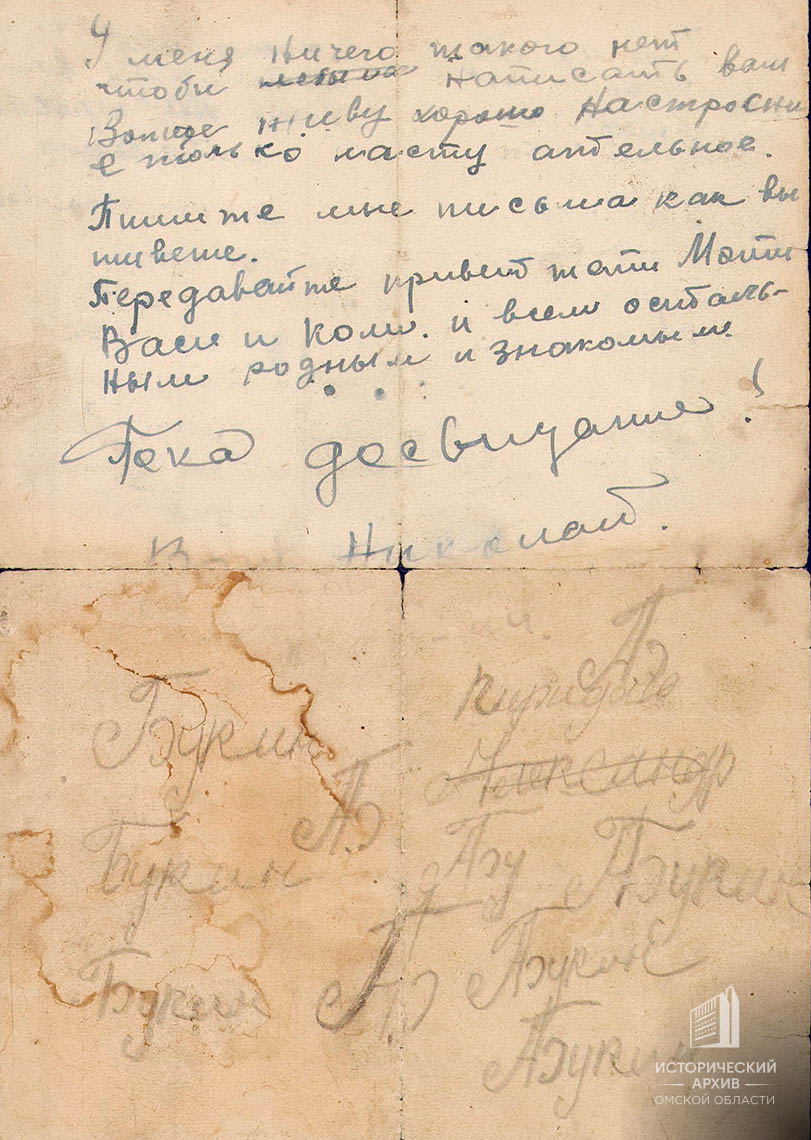 У меня ничего такого нет
чтоби написать вам
Вопще живу хорошо Настроени
е только наступательное.
Пишите мне письма как вы
живете.
Передавайте привет тёти Моти
Васи и Коли. и всем осталь-
ным родным и знакомым
Пока досвидание!
Ваш Николай.
Букин
АБ
Александр
АБ
Букин
АБу
АБукин
Букин
АБ
АБукин
АБукин
ИСТОРИЧЕСКИЙ
АРХИВ
ОМСКОЙ ОБЛАСТИ